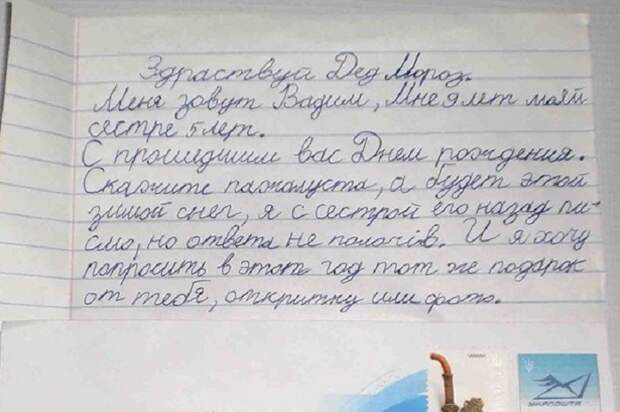 Здраствуй Дед Мороз.
Меня зовут Вадим, Мне 9 лет моей
сестре 5 лет.
С прошедшим вас Днем рождения.
Скажите пажалуста, а будет этой
зимой снег, я с сестрой его назад пи-
смо, но ответа не полочів. И я хочу
попросить в этот год тот же подарок
от тебя, откритку или фото.
УКРПОШТА